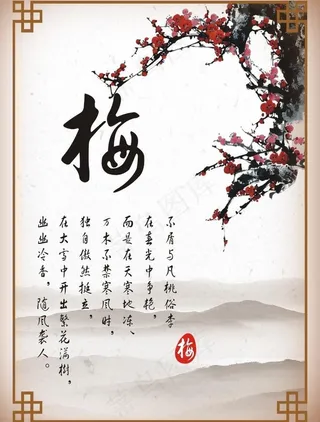 梅
不屑与凡桃俗李
在春光中争艳，
而是在天寒地冻、
万木不禁寒风时，
独自傲然挺立，
在大雪中开出繁花满樹，
幽幽冷香，随風袭人。
梅